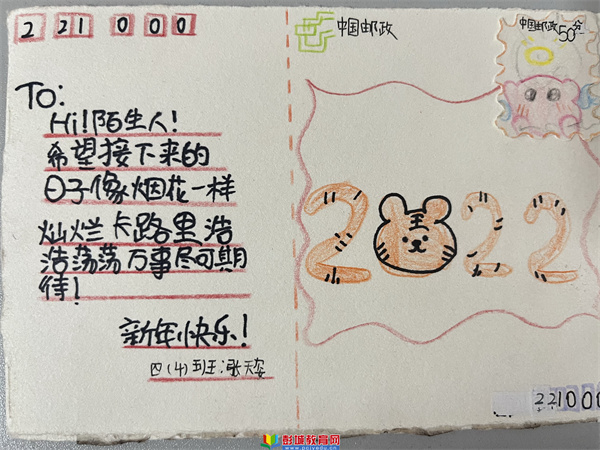 2 21 0 0 0
中国邮政
中国邮政50分
To:
Hi!陌生人!
希望接下来的
日子像烟花一样
灿烂 卡路里浩
浩荡荡 万事尽可期
待!
新年快乐!
四(4)班:张天安
2022
王
221000
彭城教育网
www.pchyedu.cn